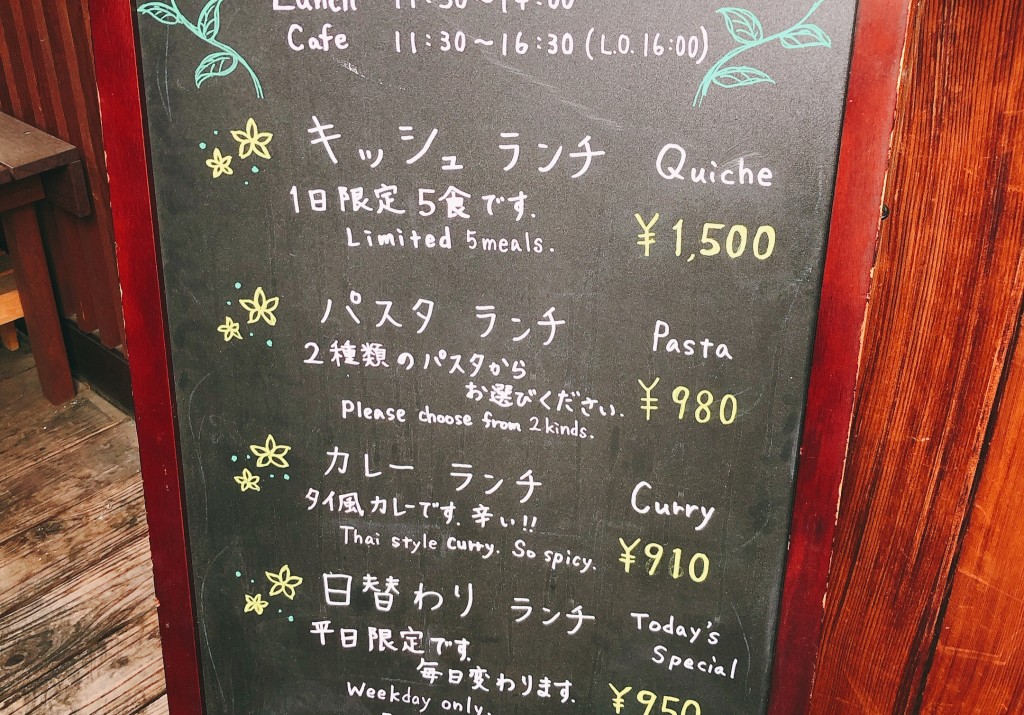 Lunch 11:30〜14:00
Cafe 11:30〜16:30 (L.O. 16:00)
キッシュ ランチ Quiche
1日限定 5食です.
Limited 5meals. ¥1,500
パスタ ランチ Pasta
2種類のパスタから
お選びください. ¥980
Please choose from 2kinds.
カレー ランチ Curry
タイ風カレーです. 辛い!!
Thai style curry. So spicy. ¥910
日替わり ランチ Today's Special
平日限定です.
毎日変わります.
Weekday only. ¥950